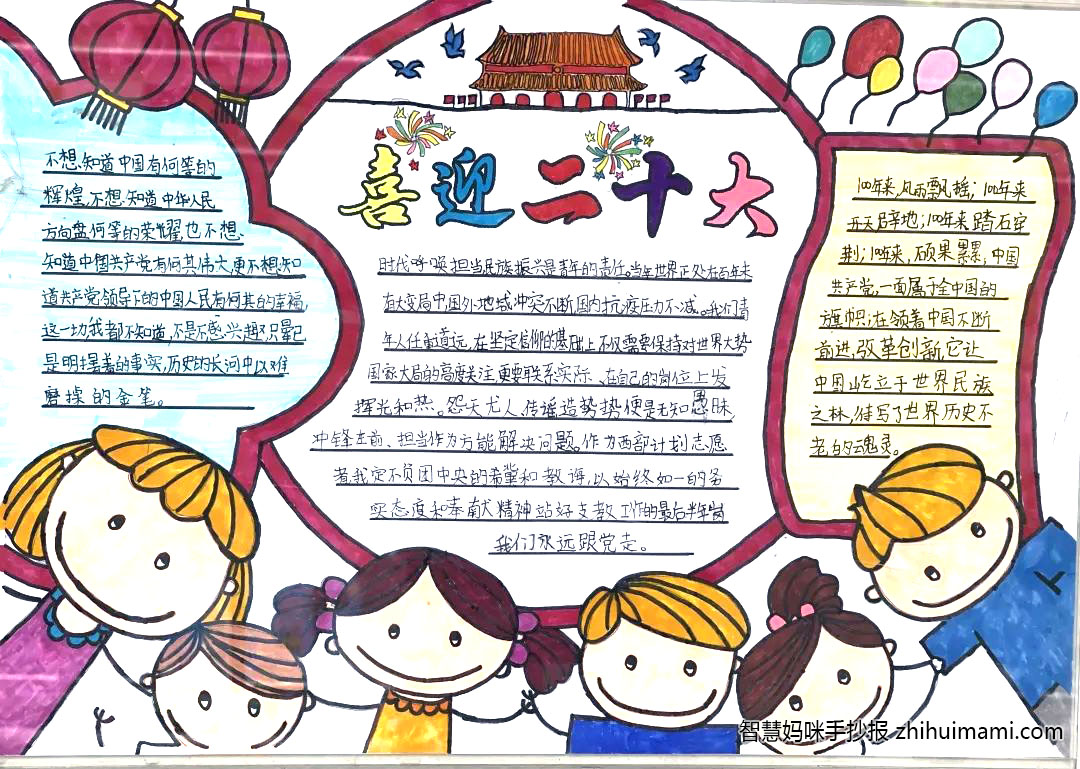 喜迎二十大
不想知道中国有何等的
辉煌,不想知道中华人民
方向盘何等的荣耀,也不想
知道中国共产党有何其伟大,更不想知
道共产党领导下的中国人民有何其的幸福,
这一切我都不知道,不是不感兴趣,只是
是明摆着的事实,历史的长河中以难
磨操的金笔。
时代呼唤担当,民族振兴是青年的责任。当年世界正处在百年未
有大变局中国外地域冲突不断,国内抗疫压力不减。我们青
年人任重道远,在坚定信仰的基础上不仅需要保持对世界大势
国家大局的高度关注,更要联系实际、在自己的岗位上发
挥光和热。怨天尤人,传谣造势势便是无知愚昧,
冲锋在前、担当作为方能解决问题。作为西部计划志愿
者,我定不负团中央的希望和教诲,以始终如一的务
实态度和奉献犬精神站好支教工作的最后半年岗
我们永远跟党走。
100年来,风雨飘摇;100年来
开天辟地;100年来踏石牢
荆;100年来,硕果累累,中国
共产党,一面属于全中国的
旗帜;在领着中国不断
前进,改革创新,它让
中国屹立于世界民族
之林,待写了世界历史不
老的魂灵。
智慧妈咪手抄报 zhihuimami.com